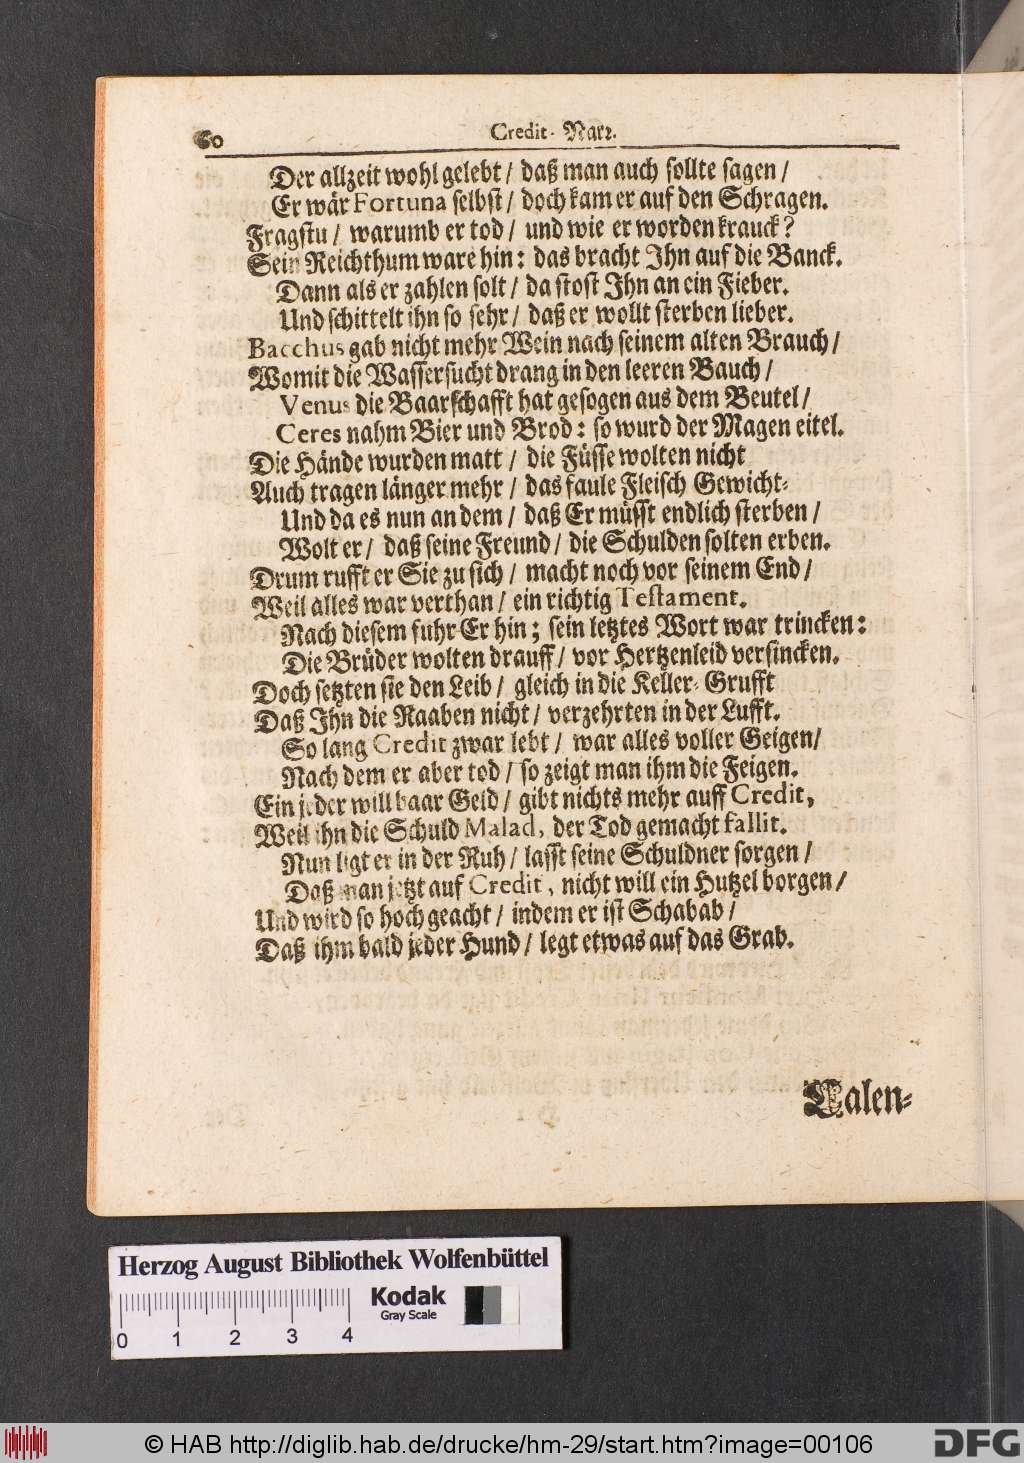 60
Credit-Narr.
Der allzeit wohl gelebt / daß man auch sollte sagen /
Er wär Fortuna selbst / doch kam er auf den Schragen.
Fragstu / warumb er tod / und wie er worden kranck?
Sein Reichthum ware hin: das bracht Ihn auf die Banck.
Dann als er zahlen solt / da stost Ihn an ein Fieber.
Und schittelt ihn so sehr / daß er wollt sterben lieber.
Bacchus gab nicht mehr Wein nach seinem alten Brauch /
Womit die Wassersucht drang in den leeren Bauch /
Venus die Baarschafft hat gesogen aus dem Beutel /
Ceres nahm Bier und Brod: so wurd der Magen eitel.
Die Hände wurden matt / die Füsse wolten nicht
Auch tragen länger mehr / das faule Fleisch Gewicht-
Und da es nun an dem / daß Er müsst endlich sterben /
Wolt er / daß seine Freund / die Schulden solten erben.
Drum rufft er Sie zu sich / macht noch vor seinem End /
Weil alles war verthan / ein richtig Testament.
Nach diesem fuhr Er hin; sein letztes Wort war trincken:
Die Brüder wolten drauff / vor Hertzenleid versincken.
Doch setzten sie den Leib / gleich in die Keller-Grufft
Daß Ihn die Raaben nicht / verzehrten in der Lufft.
So lang Credit zwar lebt / war alles voller Geigen /
Nach dem er aber tod / so zeigt man ihm die Feigen.
Ein jeder will baar Geld / gibt nichts mehr auff Credit,
Weil ihn die Schuld Malad, der Tod gemacht fallit.
Nun ligt er in der Ruh / lasst seine Schuldner sorgen /
Daß man jetzt auf Credit, nicht will ein Hutzel borgen /
Und wird so hoch geacht / indem er ist Schabab /
Daß ihm bald jeder Hund / legt etwas auf das Grab.
Calen-
Herzog August Bibliothek Wolfenbüttel
Kodak
Gray Scale
0 1 2 3 4
© HAB http://diglib.hab.de/drucke/hm-29/start.htm?image=00106
DFG